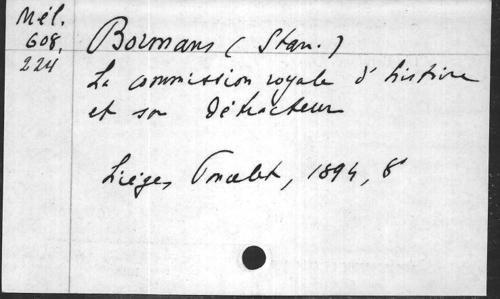 Mél.
608,
224
Bormans (Stan.)
La commission royale d'histoire
et son détracteur
Liége, Poncelet, 1894, 8°